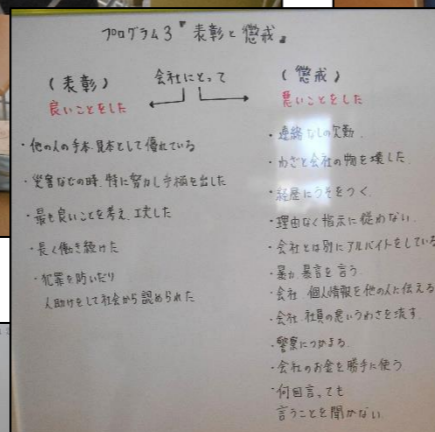 プログラム3『表彰と懲戒』
会社にとって
(表彰)
良いことをした
・他の人の手本見本として優れている
・災害などの時、特に努力し功績を出した
・最も良いことを考え、工夫した
・長く働き続けた
・犯罪を防いだり
人助けをして社会から認められた
(懲戒)
悪いことをした
・連絡なしの欠勤
・わざと会社の物を壊した
・経歴にうそをつく
・理由なく指示に従わない
・会社とは別にアルバイトをしている
・暴力 暴言を言う
・会社 個人情報を他の人に伝える
・会社 社員の悪いうわさを流す
・警察につかまる
・会社のお金を勝手に使う
・何回言っても
言うことを聞かない